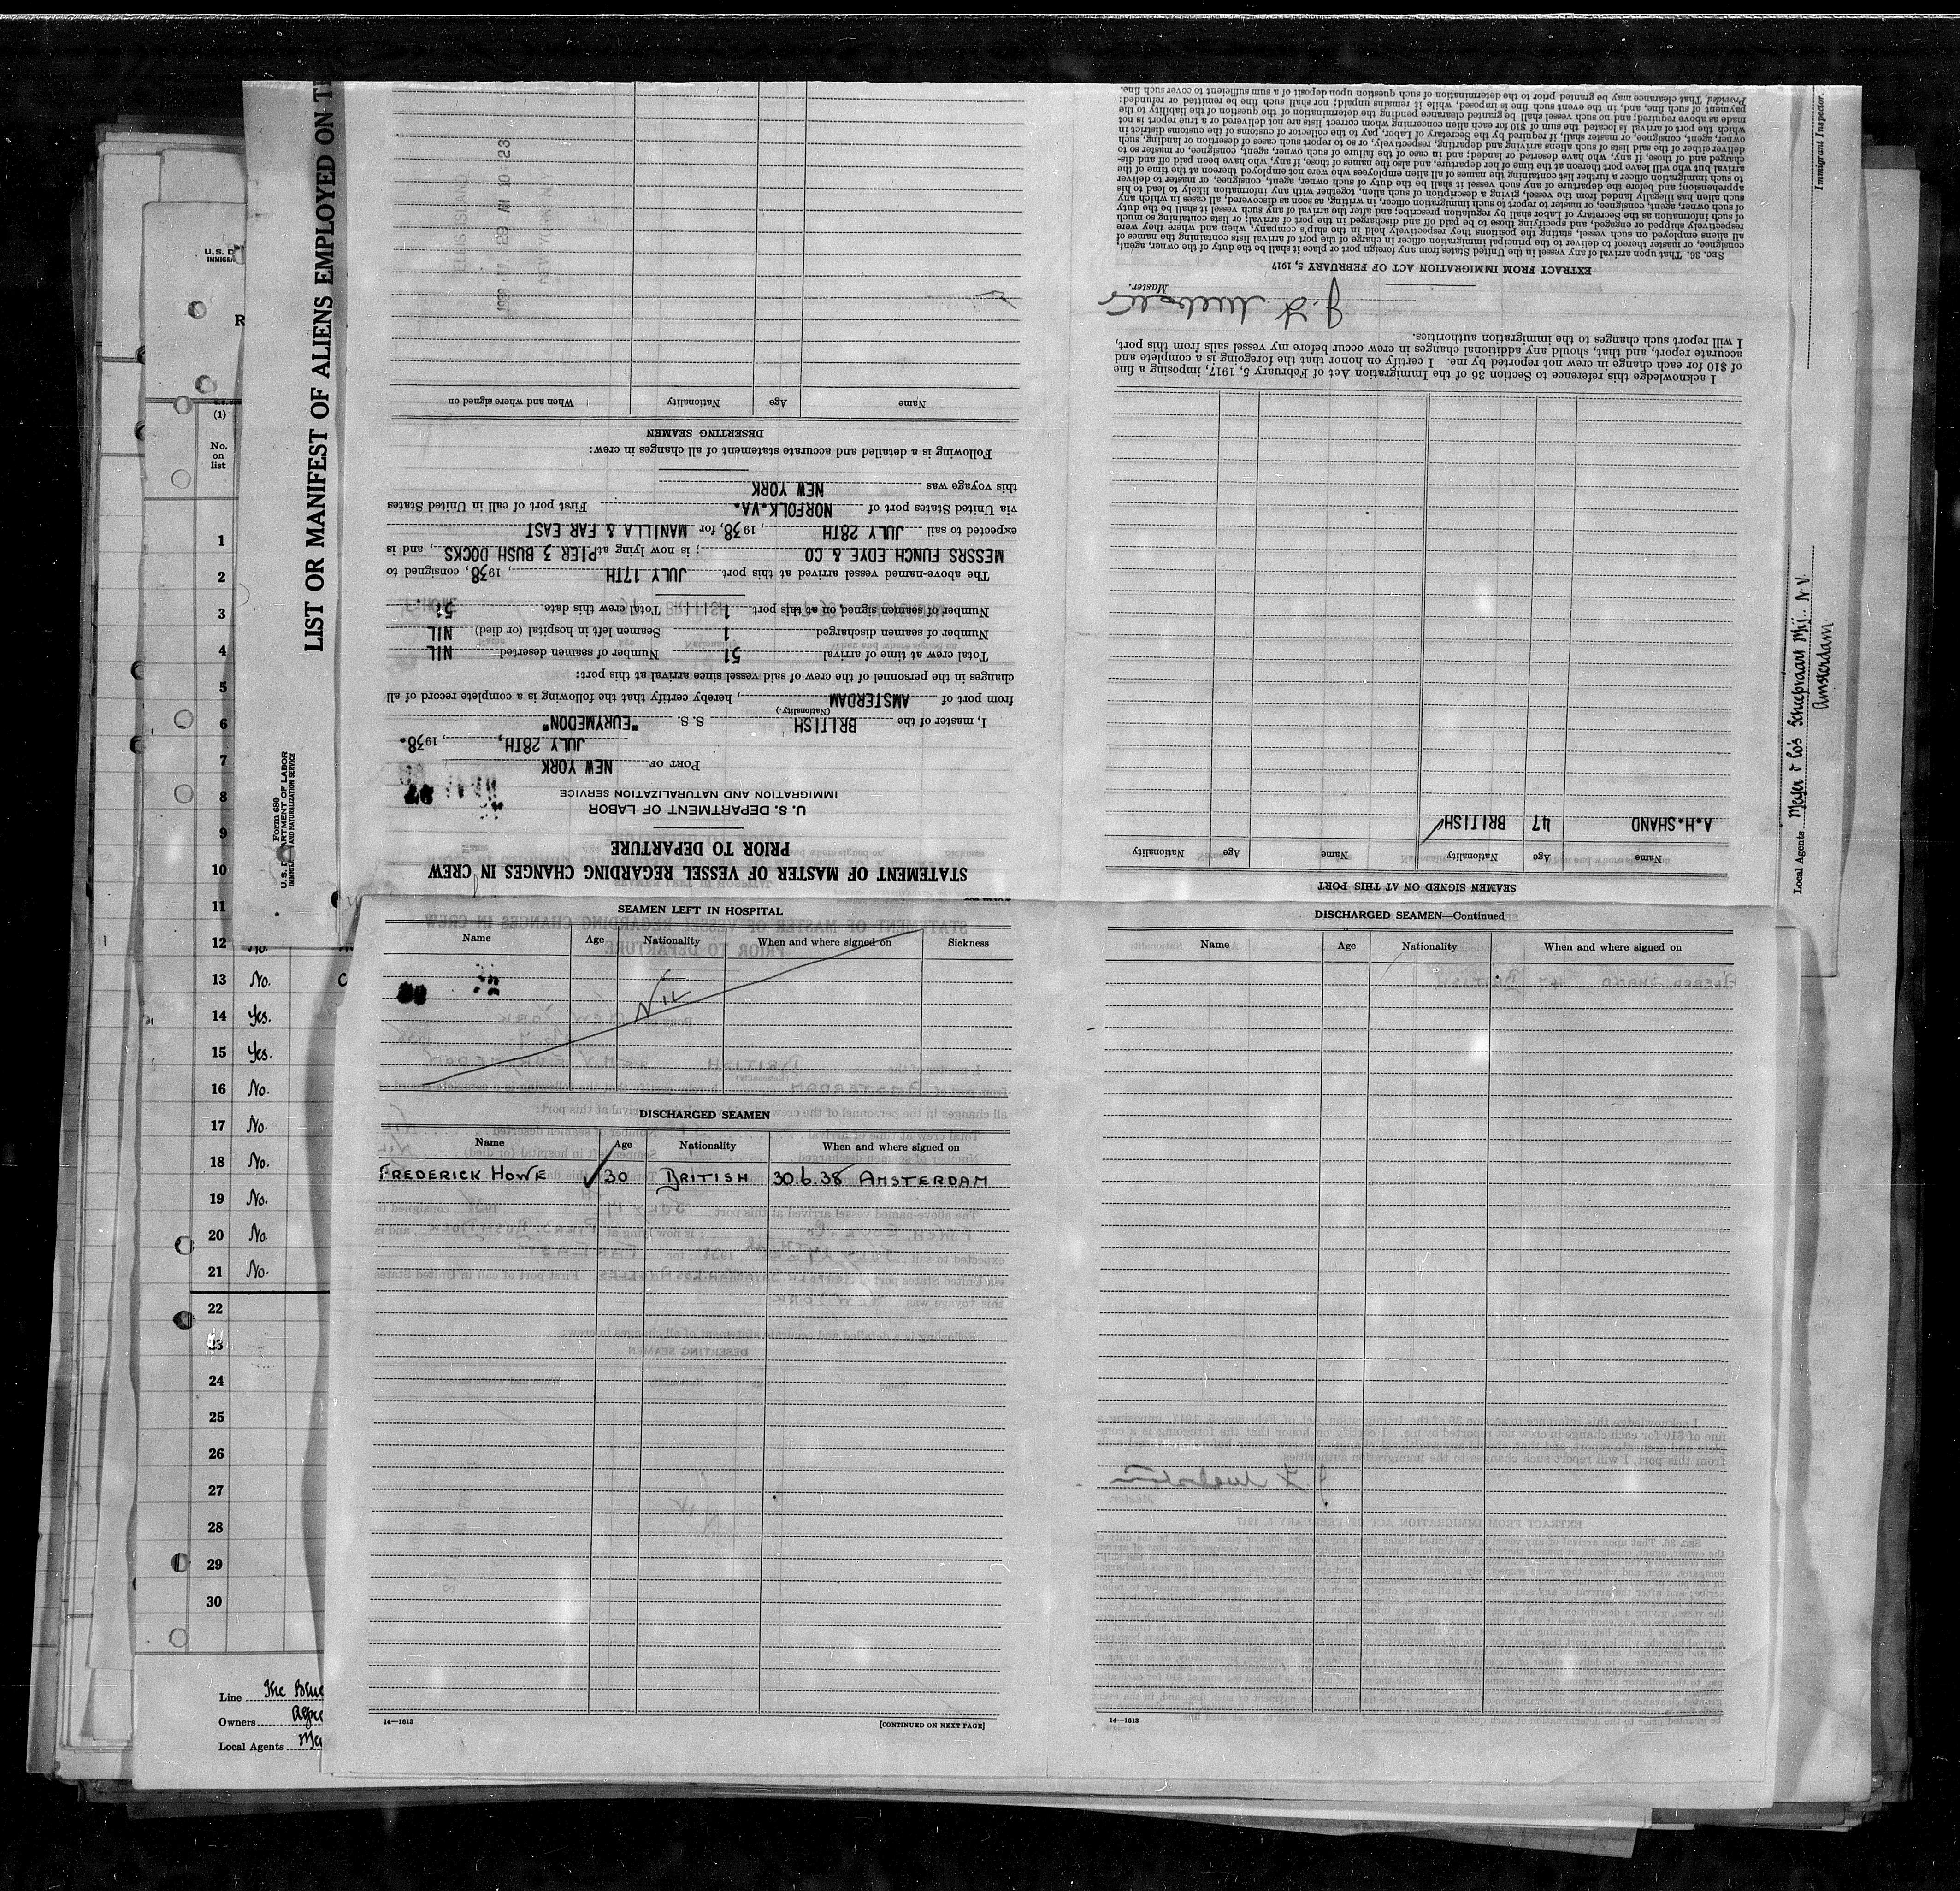 STATEMENT OF MASTER OF VESSEL REGARDING CHANGES IN CREW
PRIOR TO DEPARTURE
U. S. DEPARTMENT OF LABOR
IMMIGRATION AND NATURALIZATION SERVICE
PORT OF NEW YORK
JULY 28TH, 1938.
I, master of the BRITISH S. S. "EURYMEDON"
(Nationality.)
from port of AMSTERDAM, hereby certify that the following is a complete record of all
changes in the personnel of the crew of said vessel since arrival at this port:
Total crew at time of arrival 51 Number of seamen deserted NIL
Number of seamen discharged 1 Seamen left in hospital (or died) NIL
Number of seamen signed on at this port 1 Total crew this date 51.
The above-named vessel arrived at this port JULY 17TH, 1938, consigned to
MESSRS FUNCH EDYE & CO; is now lying at PIER 3 BUSH DOCKS, and is
expected to sail JULY 28TH, 1938, for MANILLA & FAR EAST
via United States port of NORFOLK.VA. First port of call in United States
this voyage was NEW YORK
Following is a detailed and accurate statement of all changes in crew:
DESERTING SEAMEN
Name Age Nationality When and where signed on
ELLIS ISLAND
NEW YORK, N.Y.
SEAMEN SIGNED ON AT THIS PORT
Name Age Nationality Name Age Nationality
A.H.SHAND 47 BRITISH
I acknowledge this reference to Section 36 of the Immigration Act of February 5, 1917, imposing a fine
of $10 for each change in crew not reported by me. I certify on honor that the foregoing is a complete and
accurate report, and that, should any additional changes in crew occur before my vessel sails from this port,
I will report such changes to the immigration authorities.
Master.
EXTRACT FROM IMMIGRATION ACT OF FEBRUARY 5, 1917
SEC. 36. That upon arrival of any vessel in the United States from any foreign port or place it shall be the duty of the owner, agent,
consignee, or master thereof to deliver to the principal immigration officer in charge of the port of arrival lists containing the names of
all aliens employed on such vessel, stating the positions they respectively hold in the ship's company, when and where they were
respectively shipped or engaged, and specifying those to be paid off and discharged in the port of arrival; or lists containing so much
of such information as the Secretary of Labor shall by regulation prescribe; and after the arrival of any such vessel it shall be the duty
of such owner, agent, consignee, or master to report to such immigration officer, in writing, as soon as discovered, all cases in which any
such alien has illegally landed from the vessel, giving a description of such alien, together with any information likely to lead to his
apprehension; and before the departure of any such vessel it shall be the duty of such owner, agent, consignee, or master to deliver
to such immigration officer a further list containing the names of all alien employees who were not employed thereon at the time of the
arrival but who will leave port thereon at the time of her departure, and also the names of those, if any, who have been paid off and dis-
charged and of those, if any, who have deserted or landed; and in case of the failure of such owner, agent, consignee, or master so to
deliver either of the said lists of such aliens arriving and departing, respectively, or so to report such cases of desertion or landing, such
owner, agent, consignee, or master shall, if required by the Secretary of Labor, pay to the collector of customs of the customs district in
which the port of arrival is located the sum of $10 for each alien concerning whom correct lists are not delivered or a true report is not
made as above required; and no such vessel shall be granted clearance pending the determination of the question of the liability to the
payment of such fine, and, in the event such fine is imposed, while it remains unpaid; nor shall such fine be remitted or refunded:
Provided, That clearance may be granted prior to the determination of such question upon deposit of a sum sufficient to cover such fine.
SEAMEN LEFT IN HOSPITAL
Name Age Nationality When and where signed on Sickness
NIL
DISCHARGED SEAMEN
Name Age Nationality When and where signed on
FREDERICK HOWE 30 BRITISH 30.6.38 AMSTERDAM
14—1613
[CONTINUED ON NEXT PAGE]
DISCHARGED SEAMEN—Continued
Name Age Nationality When and where signed on
14—1613
LIST OR MANIFEST OF ALIENS EMPLOYED ON
Form 680
U. S. DEPARTMENT OF LABOR
IMMIGRATION AND NATURALIZATION SERVICE
Immigrant Inspector.
Local Agents Meijer & Co's Scheepvaart Mij. N.V.
Amsterdam
U. S. D
IMMIGRA
R
(1)
No.
on
list
1
2
3
4
5
6
7
8
9
10
11
12 No.
13 No.
14 Yes.
15 Yes.
16 No.
17 No.
18 No.
19 No.
20 No
21 No.
22
23
24
25
26
27
28
29
30
Line The Blue
Owners
Local Agents